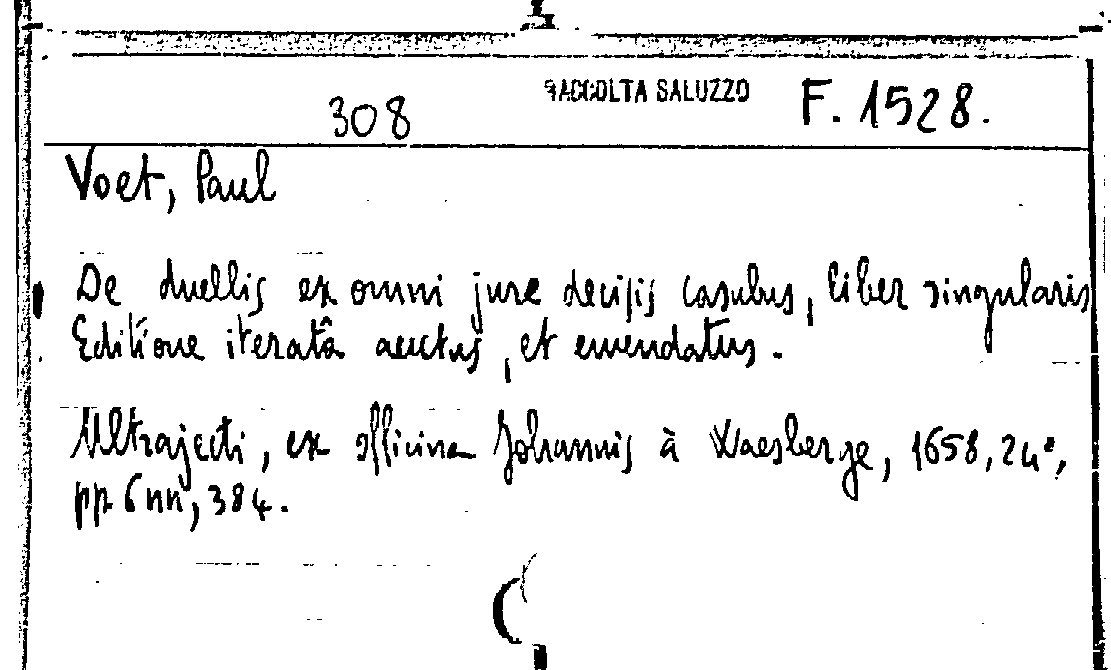 308 RACCOLTA SALUZZO F. 1528.
Voet, Paul
De duellis ex omni jure decisis casubus, liber singularis
Editione iteratâ auctus, et emendatus.
Ultrajecti, ex officina Johannis à Waesberge, 1658, 24°,
pp. 6 nn, 384.